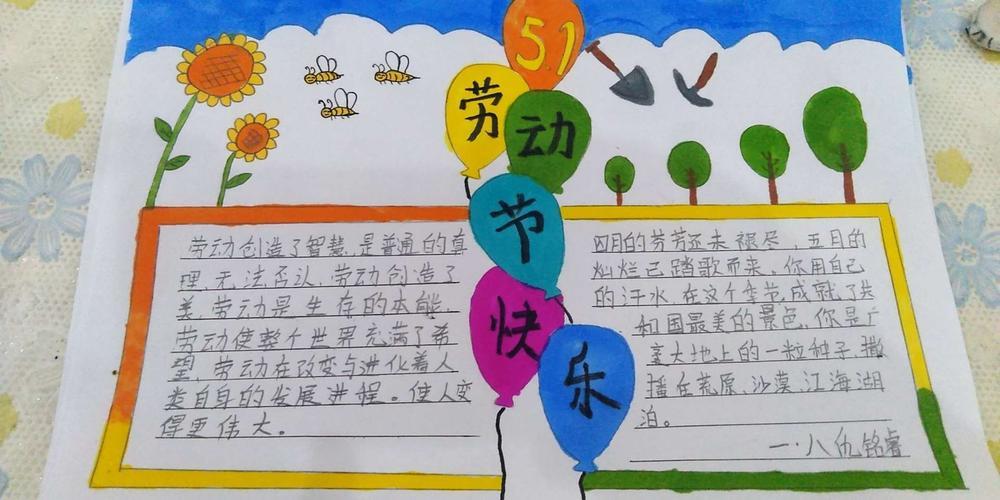 5.1
劳
动
节
快
乐
劳动创造了智慧,是普通的真
理,无法否认,劳动创造了
美,劳动是生存的本能,
劳动使整个世界充满了希
望,劳动在改变与进化着人
类自身的发展进程。使人变
得更伟大。
四月的芬芳还未褪尽,五月的
灿烂已踏歌而来。你用自己
的汗水,在这个季节,成就了共
和国最美的景色,你是广
袤大地上的一粒种子,撒
播在荒原、沙漠、江海湖
泊。
一·八仇铭睿